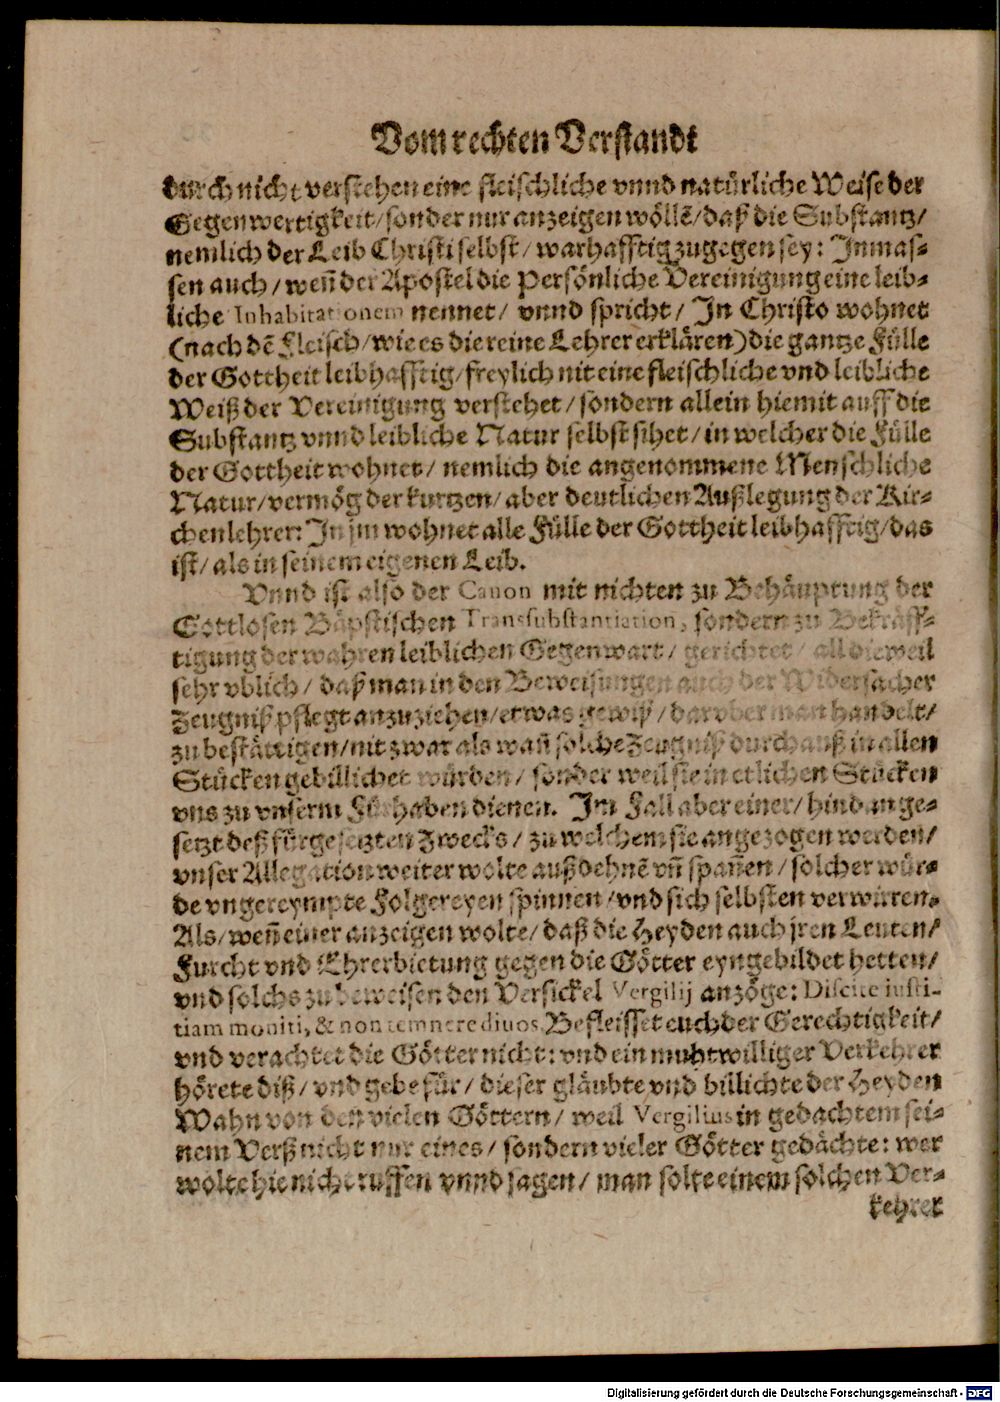 Vom rechten Verstandt
durch nicht verstehen eine fleischliche vnnd natürliche Weise der
Gegenwertigkeit/ sonder nur anzeigen wöllẽ/ daß die Substantz/
nemlich der Leib Christi selbst/ warhafftig zugegen sey: Inmas-
sen auch/ weñ der Apostel die Persönliche Vereinigung eine leib-
liche Inhabitationem nennet/ vnnd spricht/ In Christo wohnet
(nach dẽ Fleisch/ wie es die reine Lehrer erklären) die gantze Fülle
der Gottheit leibhafftig/ freylich nit eine fleischliche vnd leibliche
Weiß der Vereinigung verstehet/ sondern allein hiemit auff die
Substantz vnnd leibliche Natur selbst sihet/ in welcher die Fülle
der Gottheit wohnet/ nemlich die angenommene Menschliche
Natur/ vermög der kurtzen/ aber deutlichen Außlegung der Kir-
chenlehrer: In jm wohnet alle Fülle der Gottheit leibhafftig/ das
ist/ als in seinem eigenen Leib.
Vnnd ist also der Canon mit nichten zu Behäuptung der
Gottlosen Bäpstischen Transsubstantiation, sondern zu Bekräff-
tigung der wahren leiblichen Gegenwart/ gerichtet/ all dieweil
sehr vblich/ daß man in den Beweisungen auch der Widersacher
Zeugniß pflegt anzuziehen/ etwas gewiß/ darvber man handelt/
zu bestättigen/ nit zwar als wañ solche Zeugniß durchauß in allen
Stücken gebillichet würden/ sonder weil sie in etlichen Stücken
vns zu vnserm Fürhaben dienen. Im Fall aber einer/ hindange-
setzt deß fürgesetzten Zwecks/ zu welchem sie angezogen werden/
vnser Allegation weiter wolte außdehnẽ vñ spañen/ solcher wür-
de vngereympte Folgereyen spinnen/ vnd sich selbsten verwirren.
Als/ weñ einer anzeigen wolte/ daß die Heyden auch jren Leuten/
Furcht vnd Ehrerbietung gegen die Götter eyngebildet hetten/
vnd solchs zu beweisen den Versickel Vergilij anzöge: Discite iusti-
tiam moniti, & non temnere diuos, Befleisset euch der Gerechtigkeit/
vnd verachtet die Götter nicht: vnd ein muhtwilliger Verkehrer
hörete diß/ vnd gebe für/ dieser gläubte vnd billichte der Heyden
Wahn von den vielen Göttern/ weil Vergilius in gedachtem sei-
nem Verß nicht nur eines/ sondern vieler Götter gedächte: wer
wolte hie nicht ruffen vnnd sagen/ man solte einem solchen Ver-
kehrer
Digitalisierung gefördert durch die Deutsche Forschungsgemeinschaft - DFG